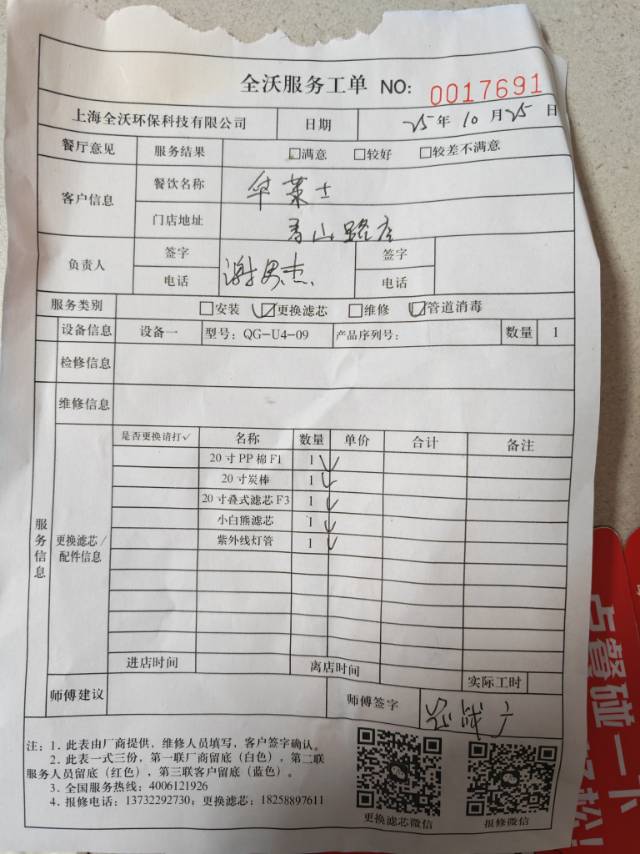 全沃服务工单 NO: 0017691
上海全沃环保科技有限公司 日期 25年10月25日
餐厅意见 服务结果 □满意 □较好 □较差不满意
客户信息 餐饮名称 华莱士
门店地址 香山路店
负责人 签字 谢 签字
电话 电话
服务类别 □安装 ☑更换滤芯 □维修 ☑管道消毒
设备信息 设备一 型号: QG-U4-09 产品序列号: 数量 1
检修信息
维修信息
服务信息
更换滤芯/配件信息
是否更换请打√ 名称 数量 单价 合计 备注
20寸PP棉F1 1 √
20寸炭棒 1 √
20寸叠式滤芯F3 1 √
小白熊滤芯 1 √
紫外线灯管 1 √
进店时间 离店时间
实际工时
师傅建议 师傅签字
注: 1. 此表由厂商提供, 维修人员填写, 客户签字确认。
2. 此表一式三份, 第一联厂商留底(白色), 第二联
服务人员留底(红色), 第三联客户留底(蓝色)。
3. 全国服务热线: 4006121926
4. 报修电话: 13732292730; 更换滤芯: 18258897611
更换滤芯微信 报修微信
点餐碰一下